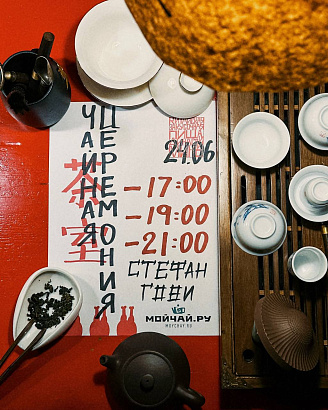 ЧАЙНАЯ
ЦЕРЕМОНИЯ
茶室
24.06
-17:00
-19:00
-21:00
СТЕФАН
ГОВИ
МОЙЧАЙ.РУ
MOYCHAY.RU